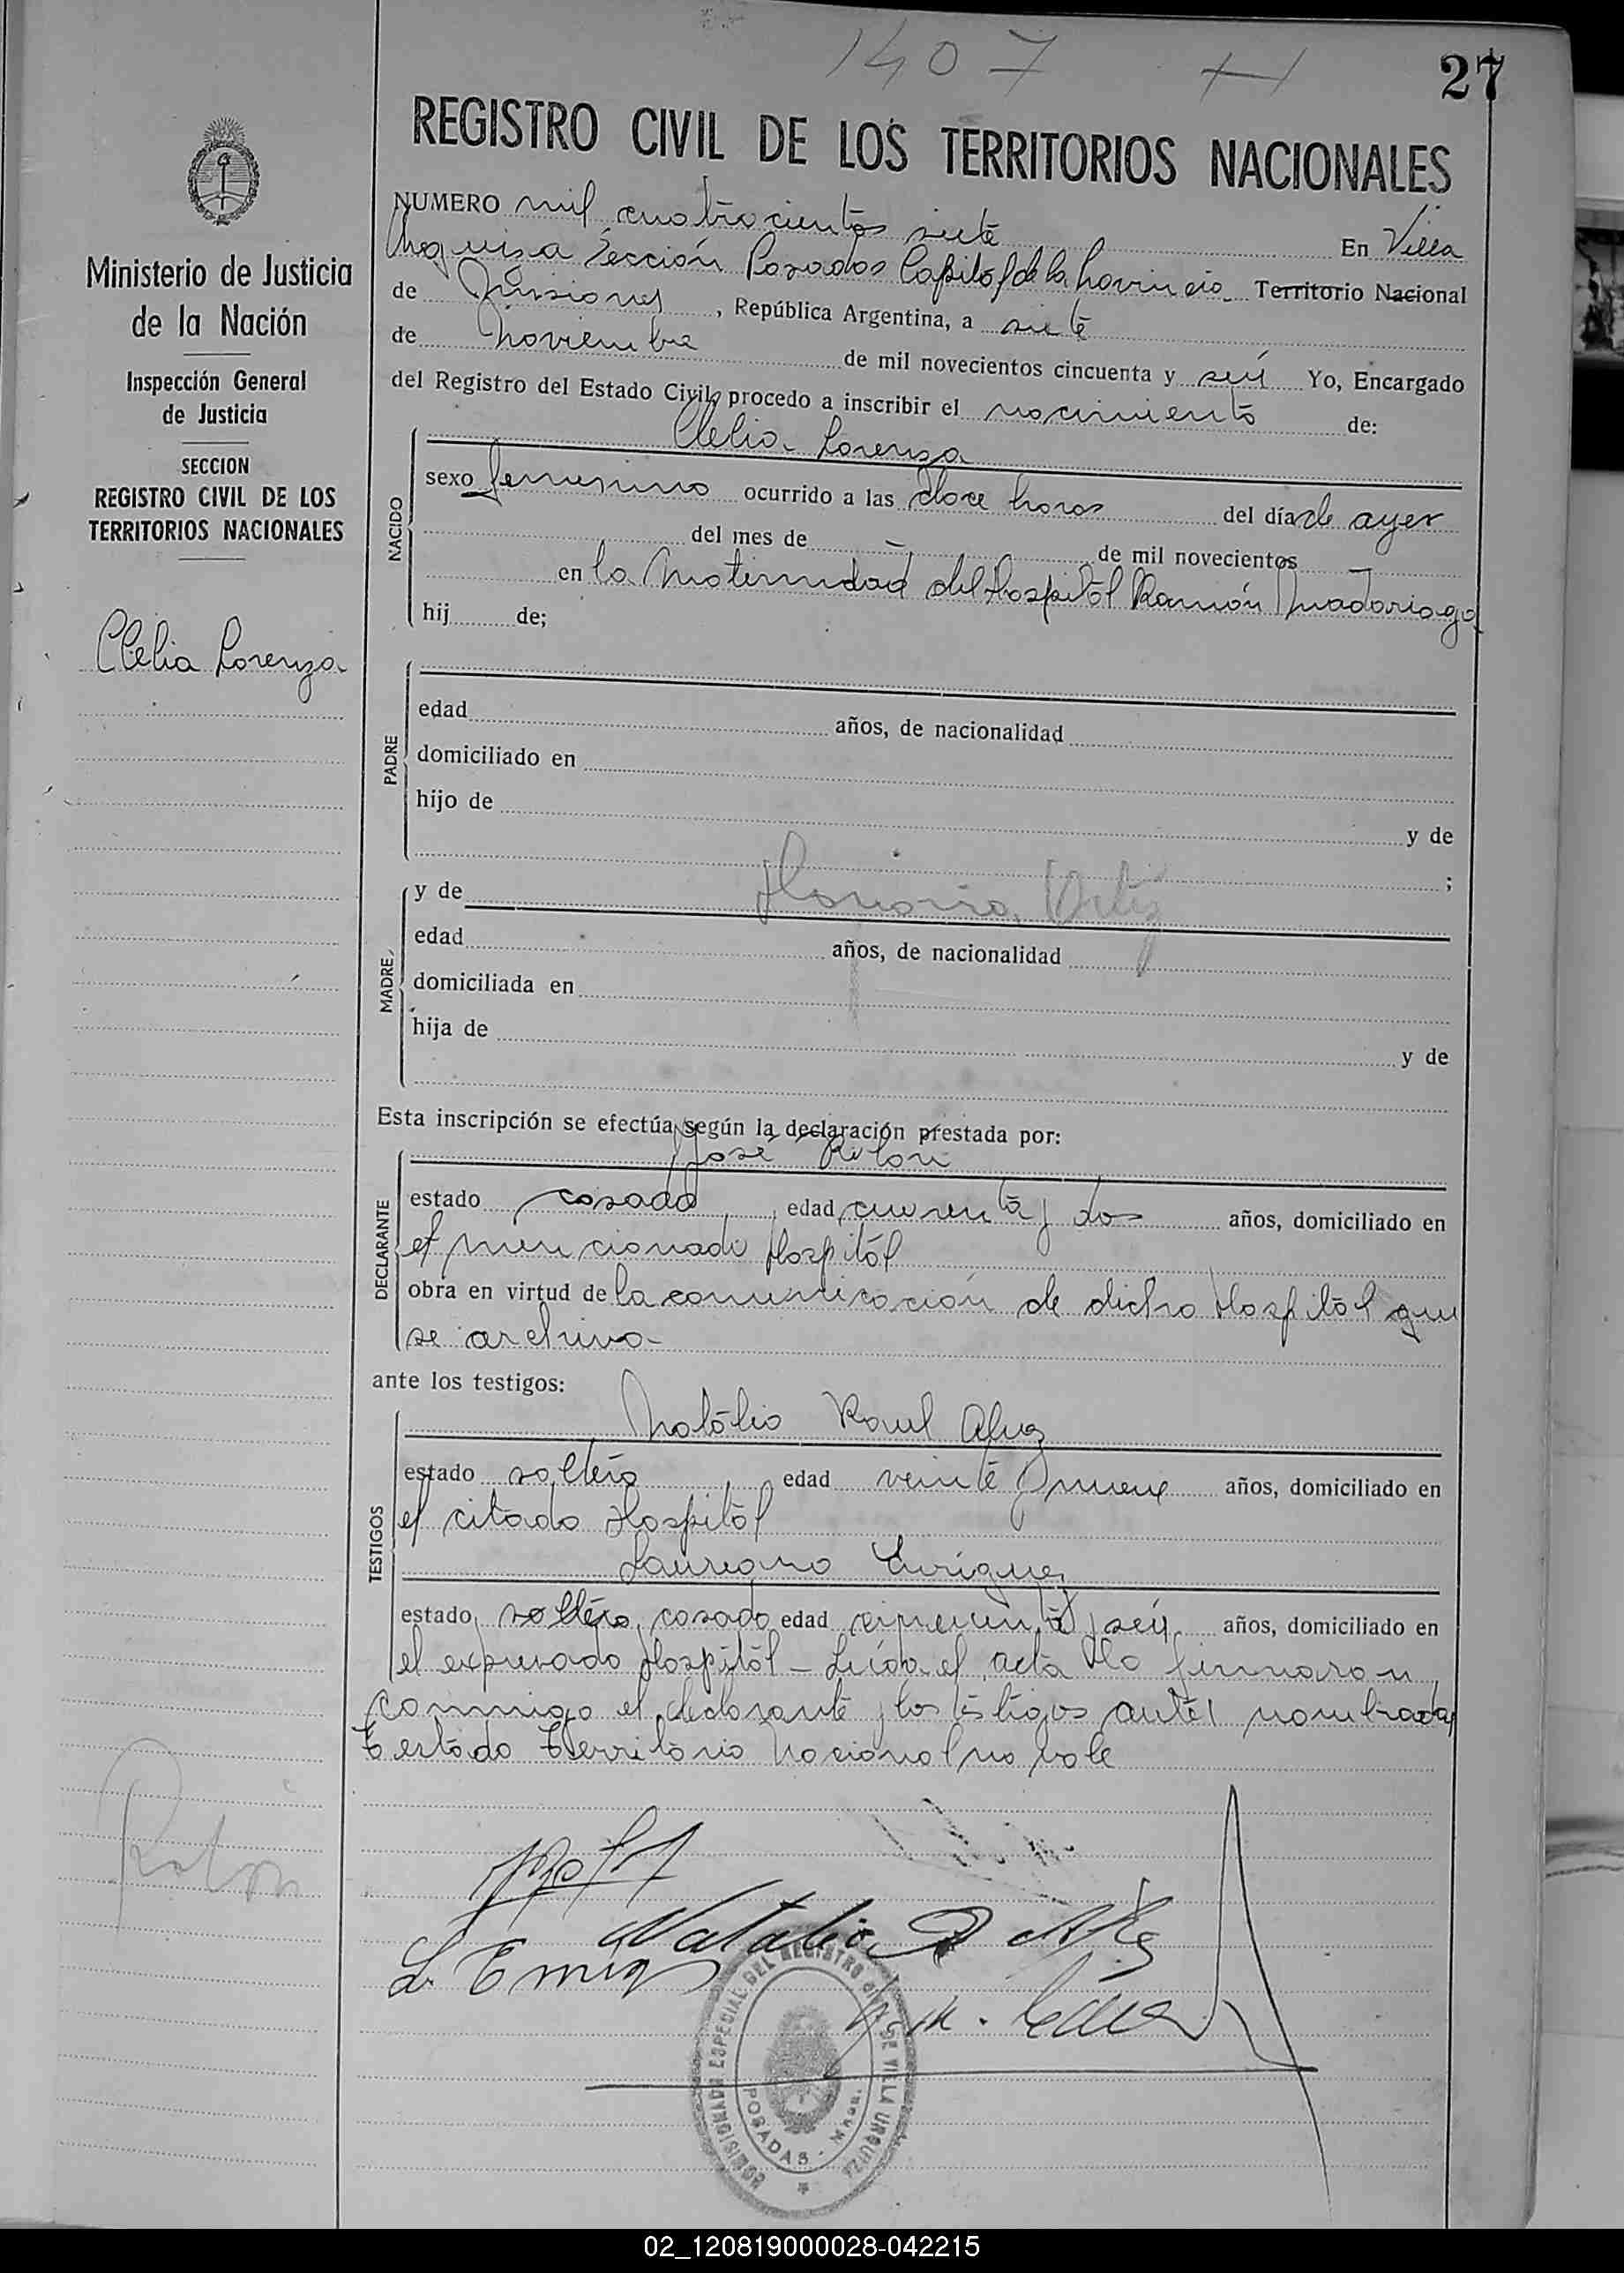 1407
27
REGISTRO CIVIL DE LOS TERRITORIOS NACIONALES
Ministerio de Justicia
de la Nación
Inspección General
de Justicia
SECCION
REGISTRO CIVIL DE LOS
TERRITORIOS NACIONALES
Clelia Lorenza
NUMERO mil cuatrocientos siete En Villa
Urquiza Sección Posadas Capital de la Provincia Territorio Nacional
de Misiones, República Argentina, a siete
de Noviembre de mil novecientos cincuenta y seis Yo, Encargado
del Registro del Estado Civil, procedo a inscribir el nacimiento de:
Clelia Lorenza
NACIDO
sexo femenino ocurrido a las doce horas del día de ayer
del mes de - de mil novecientos
en la Maternidad del Hospital Ramón Madariaga
hij de;
PADRE
edad años, de nacionalidad
domiciliado en
hijo de y de
;
MADRE
y de Ortiz
edad años, de nacionalidad
domiciliada en
hija de y de
Esta inscripción se efectúa según la declaración prestada por:
José
DECLARANTE
estado casado, edad cuarenta y dos años, domiciliado en
el mencionado Hospital
obra en virtud de la comunicación de dicho Hospital que
se archiva-
ante los testigos:
Natalio Raul
TESTIGOS
estado soltero edad veinte y nueve años, domiciliado en
el citado Hospital
Laureano Enriquez
estado soltero, casado edad cincuenta y seis años, domiciliado en
el expresado Hospital - Leída el acta la firmaron
conmigo el declarante y los testigos antes nombrados
Testado Territorio Nacional no vale
Natalio R
L. Enriq
COMISIONADO ESPECIAL DEL REGISTRO CIVIL DE VILLA URQUIZA
POSADAS - Mnes.
02_120819000028-042215